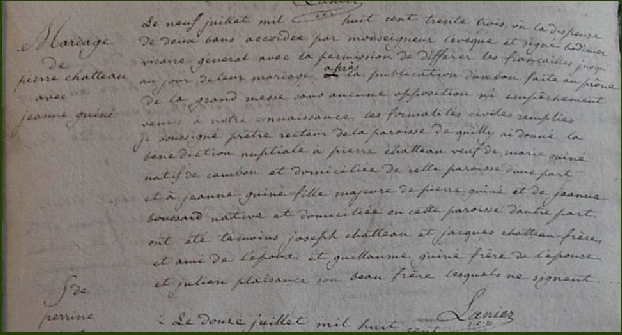 Mariage
de
pierre chatteau
avec
jeanne guiné
Le neuf juillet mil huit cent trente trois, vu la dispense
de deux bans accordée par monseigneur leveque et signé Bodinier
vicaire general avec la permission de differer les fiançailles jusqu
au jour de leur mariage après la publication d'un ban faite au prône
de la grand messe sans aucune opposition ni empêchement
venu à notre connaissance, les formalités civiles remplies
je soussigné prêtre recteur de la paroisse de quilly ai donné la
benediction nuptiale a pierre chatteau veuf de marie guiné
natif de cambon et domiciliée de cette paroisse d'une part
et à jeanne guiné fille majeure de pierre guiné et de jeanne
boussard native et domiciliée en cette paroisse d'autre part.
ont été témoins joseph chatteau et jacques chatteau frères
et ami de l'epoux et guillaume guiné frère de l'epouse
et julien plaisance son beau frère lesquels ne signent.
Lanier
S de
perrine
Le douze juillet mil huit cent